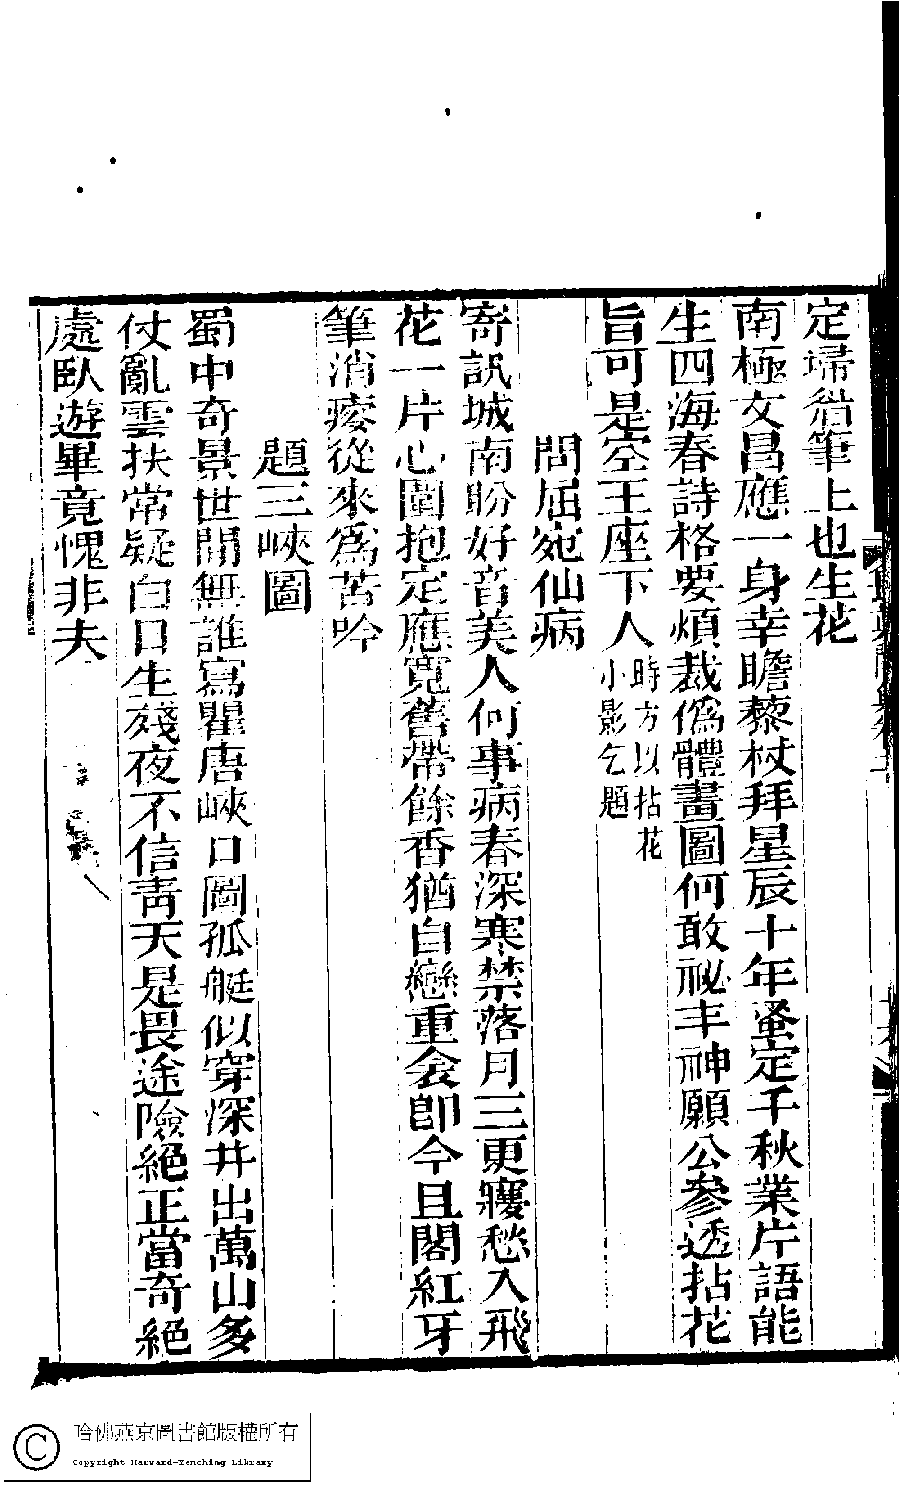 定埽衍筆上也生花
南極文昌應一身幸瞻藜杖拜星辰十年蚤定千秋業片語能
生四海春詩格要煩裁僞體畫圖何敢祕丰神願公參透拈花
旨可是空王座下人時方以拈花
小影乞題
問屈宛仙病
寄訊城南盼好音美人何事病春深寒禁落月三更寢愁入飛
花一片心圍抱定應寬舊帶餘香猶自戀重衾卽今且閣紅牙
筆消瘦從來爲苦吟
題三峽圖
蜀中奇景世間無誰寫瞿唐峽口圖孤艇似穿深井出萬山多
仗亂雲扶常疑白日生殘夜不信靑天是畏途險絕正當奇絕
處臥遊畢竟愧非夫
哈佛燕京圖書館版權所有
Copyright Harvard-Yenching Library